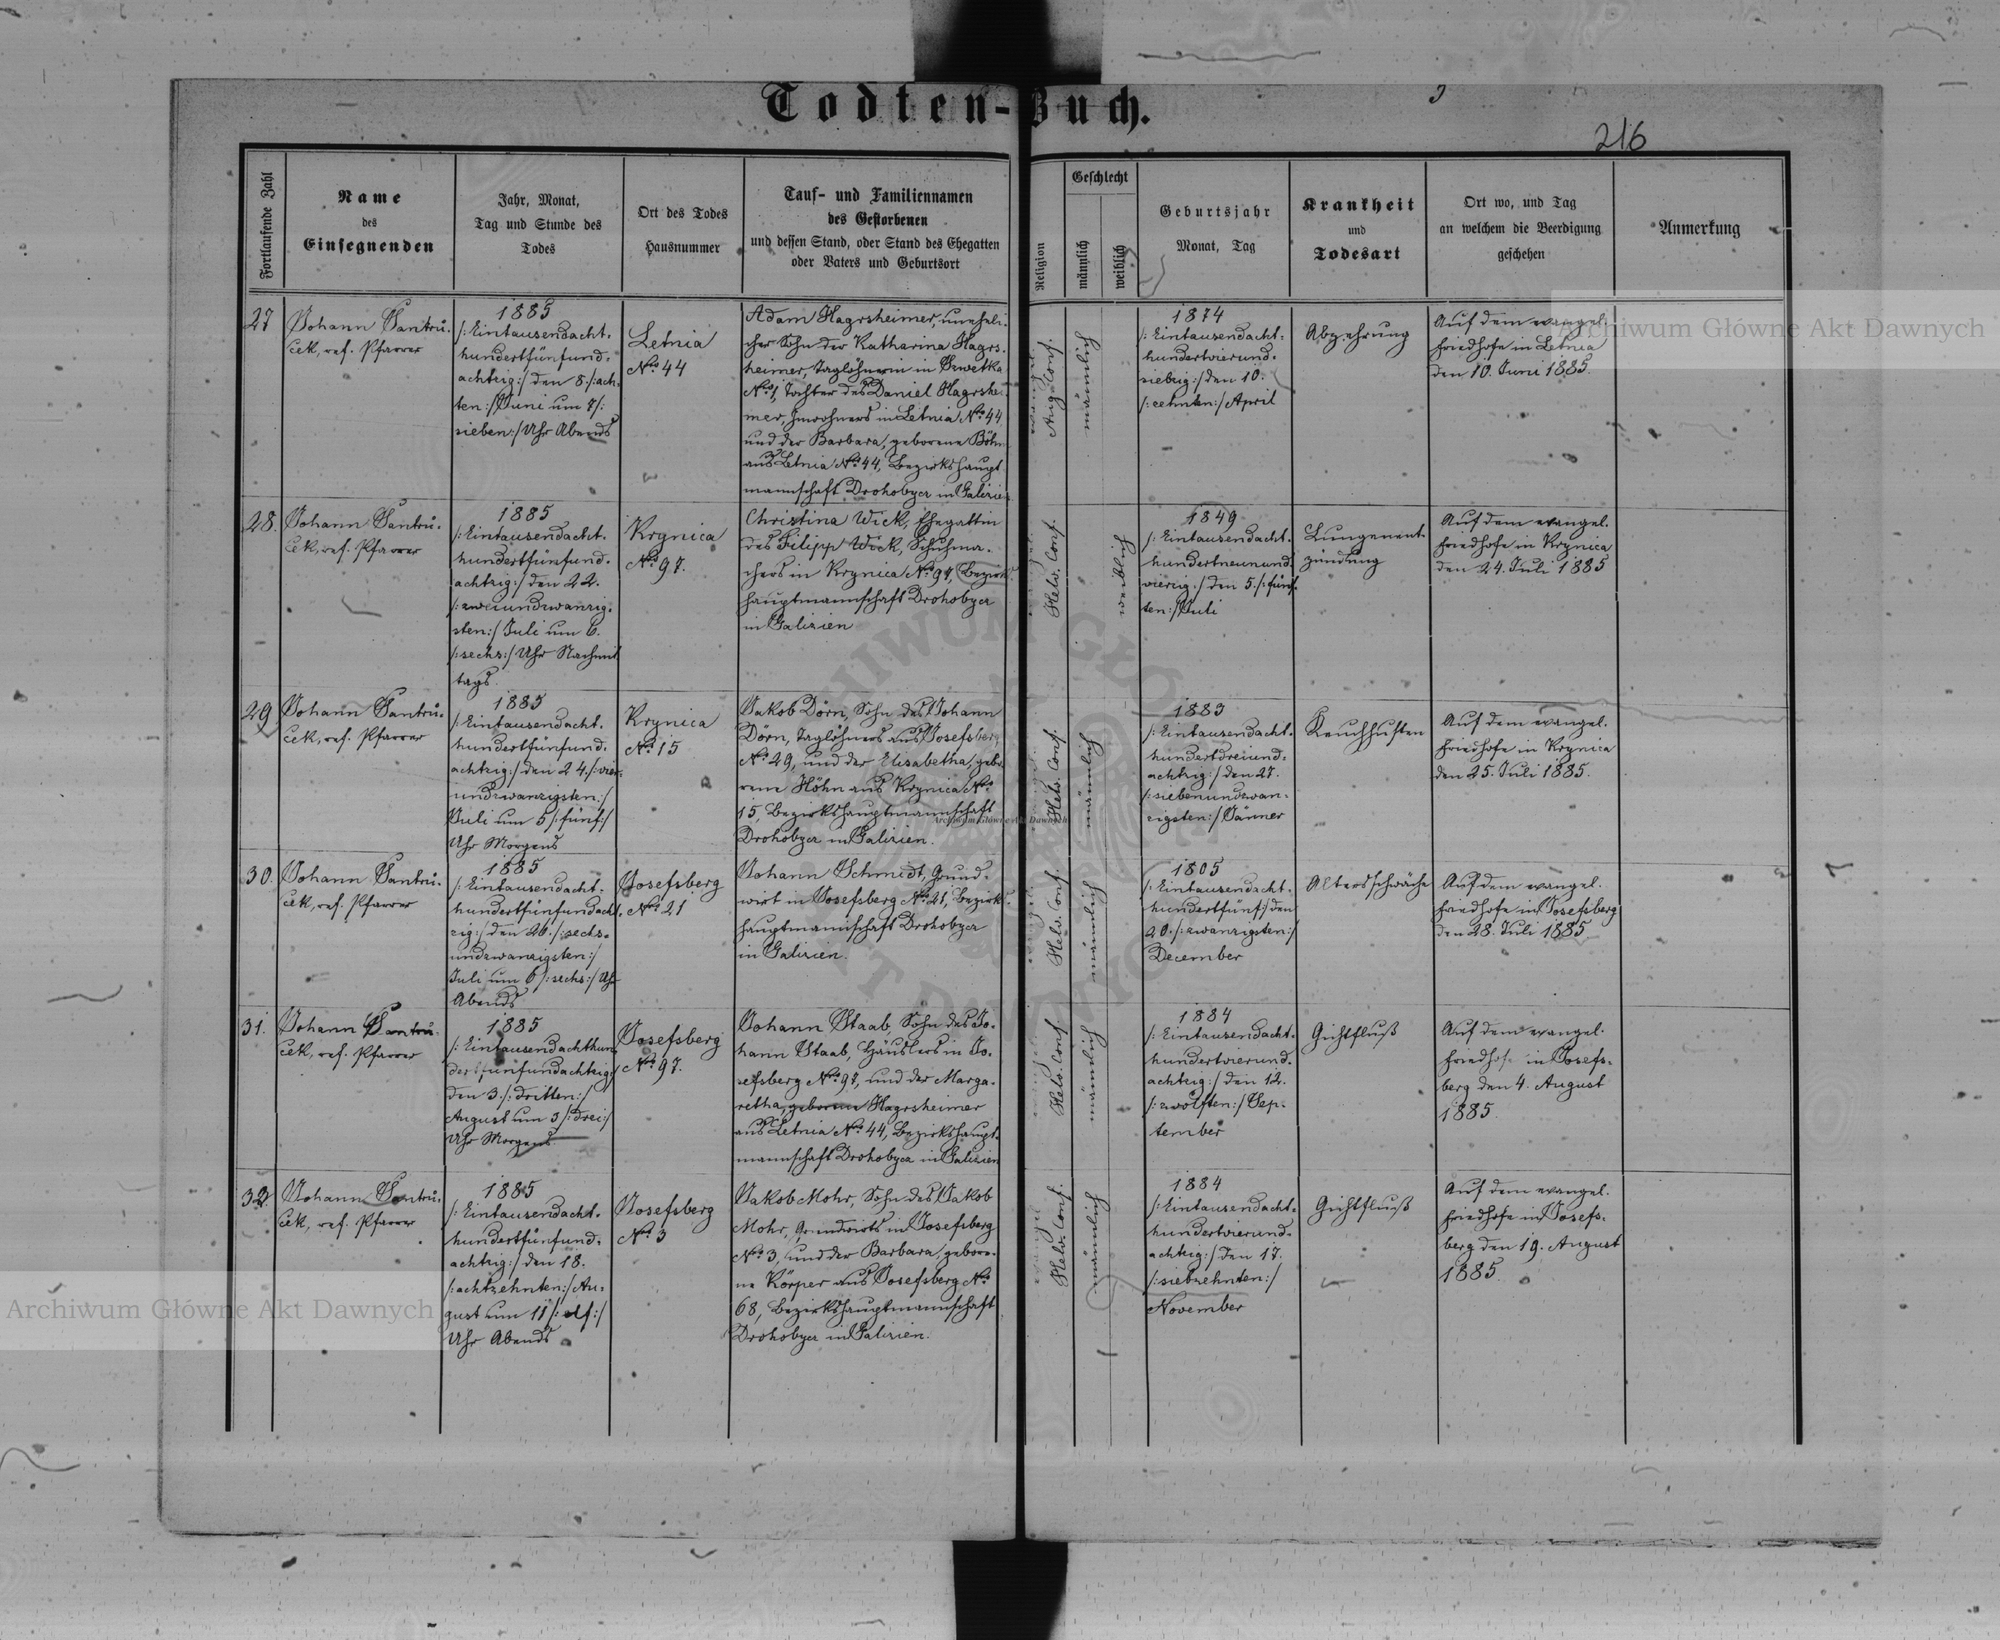 Todten-Buch.
216
Fortlaufende Zahl
Name
des
Einsegnenden
Jahr, Monat,
Tag und Stunde des
Todes
Ort des Todes
Hausnummer
Tauf- und Familiennamen
des Gestorbenen
und dessen Stand, oder Stand des Ehegatten
oder Vaters und Geburtsort
Religion
Geschlecht
männlich
weiblich
Geburtsjahr
Monat, Tag
Krankheit
und
Todesart
Ort wo, und Tag
an welchem die Beerdigung
geschehen
Anmerkung
27
Johann Santru-
ček, ref. Pfarrer
1885
/: Eintausendacht-
hundertfünfund-
achtzig :/ den 8. /: ach-
ten :/ Juni um 7 /:
sieben :/ Uhr Abends
Letnia
No. 44
Adam Hagrsheimer, unehli-
cher Sohn der Katharina Hagrs-
heimer, Taglöhnerin in
No. 1, Tochter des Daniel Hagrshei-
mer, Inwohners in Letnia No. 44
und der Barbara, geborene Böhm
aus Letnia No. 44, Bezirkshaupt-
mannschaft Drohobycz in Galizien
Aug. Conf.
männlich
1874
/: Eintausendacht-
hundertvierund-
siebzig :/ den 10.
/: zehnten :/ April
Abzehrung
Auf dem evangel.
Friedhofe in Letnia
den 10. Juni 1885.
28.
Johann Santru-
ček, ref. Pfarrer
1885
/: Eintausendacht-
hundertfünfund-
achtzig :/ den 22.
/: zweiundzwanzig-
sten :/ Juli um 6.
/: sechs :/ Uhr Nachmit
tags
Krynica
No. 97.
Christina Wick, Ehegattin
des Filipp Wick, Schuhma-
chers in Krynica No. 97, Bezirks-
hauptmannschaft Drohobycz
in Galizien
Helv. Conf.
weiblich
1849
/: Eintausendacht-
hundertneunund-
vierzig :/ den 5. /: fünf-
ten :/ Juli
Lungenent-
zündung
Auf dem evangel.
Friedhofe in Krynica
den 24. Juli 1885
29
Johann Santru-
ček, ref. Pfarrer
1885
/: Eintausendacht-
hundertfünfund-
achtzig :/ den 24. /: vier-
undzwanzigsten :/
Juli um 5 /: fünf :/
Uhr Morgens
Krynica
No. 15
Jakob Dörn, Sohn des Johann
Dörn, Taglöhners aus Josefsberg
No. 29, und der Elisabetha, gebo-
rene Höhn aus Krynica No.
15, Bezirkshauptmannschaft
Drohobycz in Galizien.
Helv. Conf.
männlich
1883
/: Eintausendacht-
hundertdreiund-
achtzig :/ den 27.
/: siebenundzwan-
zigsten :/ Jänner
Keuchhusten
Auf dem evangel.
Friedhofe in Krynica
den 25. Juli 1885.
30.
Johann Santru-
ček, ref. Pfarrer
1885
/: Eintausendacht-
hundertfünfundacht-
zig :/ den 26. /: sechs-
undzwanzigsten :/
Juli um 6 /: sechs :/ Uhr
Abends
Josefsberg
No. 21
Johann Schmidt, Grund-
wirt in Josefsberg No. 21, Bezirks-
hauptmannschaft Drohobycz
in Galizien.
Helv. Conf.
männlich
1805
/: Eintausendacht-
hundertfünf :/ den
20. /: zwanzigsten :/
December
Altersschwäche
Auf dem evangel.
Friedhofe in Josefsberg
den 28. Juli 1885
31.
Johann Santru-
ček, ref. Pfarrer
1885
/: Eintausendachthun-
dertfünfundachtzig :/
den 3. /: dritten :/
August um 3 /: drei :/
Uhr Morgens
Josefsberg
No. 97.
Johann Staab, Sohn des Jo-
hann Staab, Häuslers in Jo-
sefsberg No. 97, und der Marga-
retha, geborene Hagrsheimer
aus Letnia No. 44, Bezirkshaupt-
mannschaft Drohobycz in Galizien
Helv. Conf.
männlich
1884
/: Eintausendacht-
hundertvierund-
achtzig :/ den 12.
/: zwölften :/ Sep-
tember
Gichtfluß
Auf dem evangel.
Friedhofe in Josefs-
berg den 4. August
1885.
32.
Johann Santru-
ček, ref. Pfarrer
1885
/: Eintausendacht-
hundertfünfund-
achtzig :/ den 18.
/: achtzehnten :/ Au-
gust um 11 /: elf :/
Uhr Abends
Josefsberg
No. 3
Jakob Mohr, Sohn des Jakob
Mohr, Grundwirts in Josefsberg
No. 3, und der Barbara, gebore-
ne Körper aus Josefsberg No.
68, Bezirkshauptmannschaft
Drohobycz in Galizien.
Helv. Conf.
männlich
1884
/: Eintausendacht-
hundertvierund-
achtzig :/ den 17.
/: siebzehnten :/
November
Gichtfluß
Auf dem evangel.
Friedhofe in Josefs-
berg den 19. August
1885.
Archiwum Główne Akt Dawnych
Archiwum Główne Akt Dawnych
Archiwum Główne Akt Dawnych